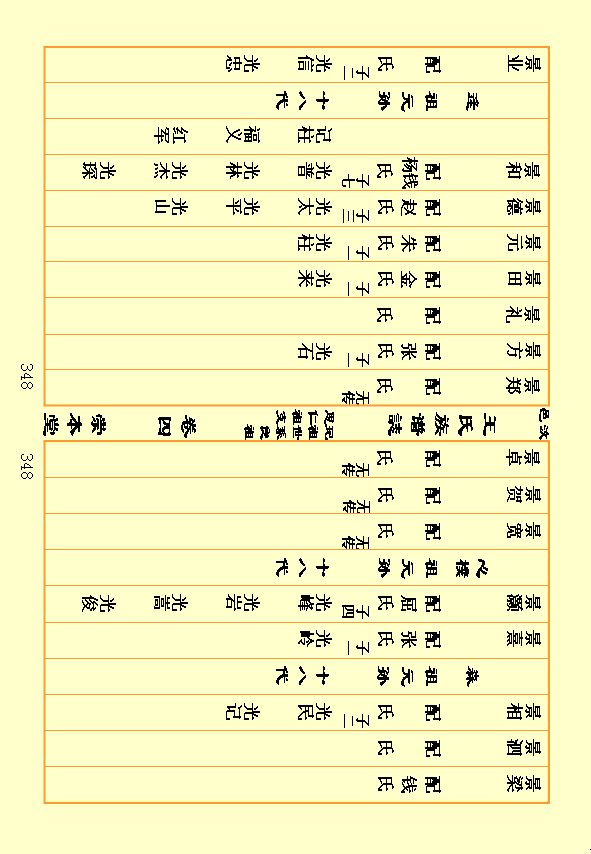 景梁 配钱氏
景泗 配 氏
景相 配 氏 子二 光民 光记
森祖元孙 十八代
景熹 配张氏 子一 光岭
景灏 配屈氏 子四 光峰 光岩 光嵩 光俊
心樸祖元孙 十八代
景宽 配 氏 无传
景贺 配 氏 无传
景卓 配 氏 无传
348
汶邑 王氏族谱誌 卷四 崇本堂
348
景郑 配 氏 无传
景方 配张氏 子一 光石
景礼 配 氏
景田 配金氏 子一 光来
景元 配朱氏 子一 光柱
景德 配赵氏 子三 光太 光平 光山
景和 配杨钱氏 子七 光善 光林 光杰 光琛
记柱 福义 红军
祖元孙 十八代
景业 配 氏 子二 光信 光忠